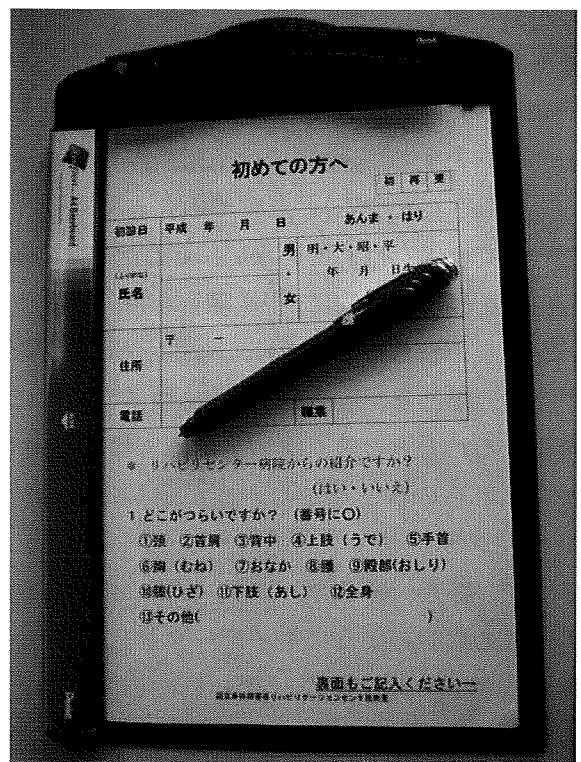 初めての方へ
初 再 更
初診日 平成 年 月 日 あんま ・ はり
(ふりがな)
氏名
男 ・ 女
明・大・昭・平
年 月 日生
住所
〒 ー
電話
職業
* リハビリセンター病院からの紹介ですか？
(はい・いいえ)
1 どこがつらいですか？ (番号に〇)
①頭 ②首肩 ③背中 ④上肢（うで） ⑤手首
⑥胸（むね） ⑦おなか ⑧腰 ⑨殿部(おしり)
⑩膝(ひざ) ⑪下肢（あし） ⑫全身
⑬その他( )
裏面もご記入くださいー
Pentel